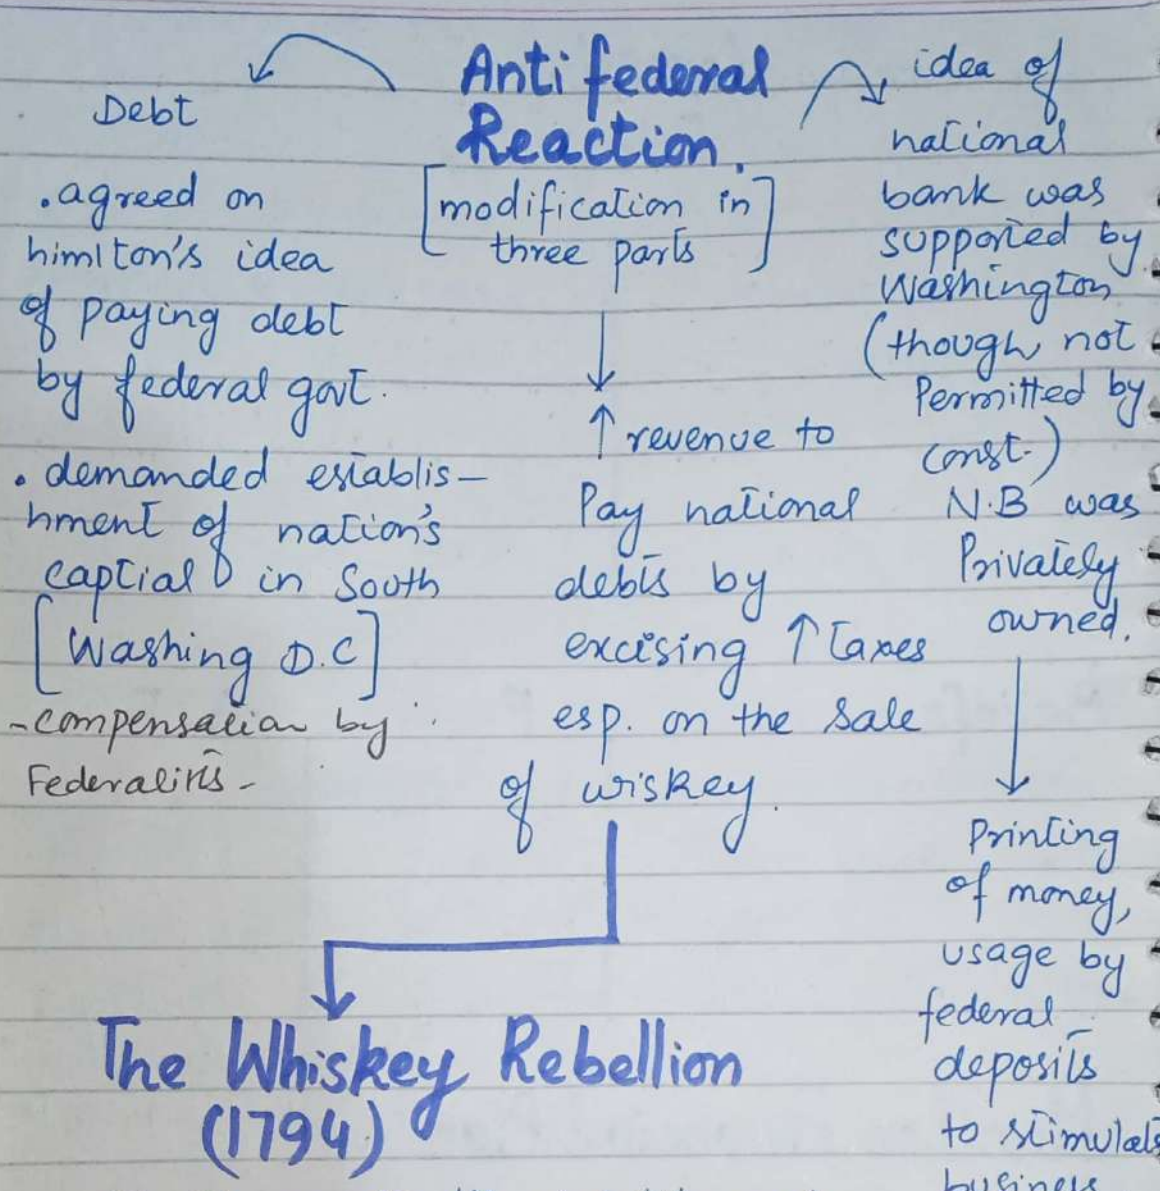 Anti federal
Reaction.
[modification in
three parts]
Debt
.agreed on
himlton's idea
of paying debt
by federal govt.
. demanded establis-
hment of nation's
captial in South
[Washing D.C]
-compensation by
Federalists-
↑ revenue to
Pay national
debts by
excising ↑ taxes
esp. on the sale
of wiskey.
The Whiskey Rebellion
(1794)
idea of
national
bank was
supported by
Washington
(though not
Permitted by
const.)
N.B was
Privately
owned.
Printing
of money,
usage by
federal
deposits
to stimulate
business